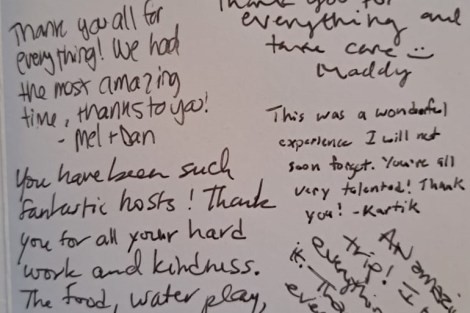 Thank you all for
everything! We had
the most amazing
time, thanks to you!
- Mel + Dan
You have been such
fantastic hosts! Thank
you for all your hard
work and kindness.
The food, water play,
Thank you for
everything and
take care :)
Maddy
This was a wonderful
experience I will not
soon forget. You're all
very talented! Thank
you! - Kartik
AN amazi
trip! I
everythin
it. Tha
eve